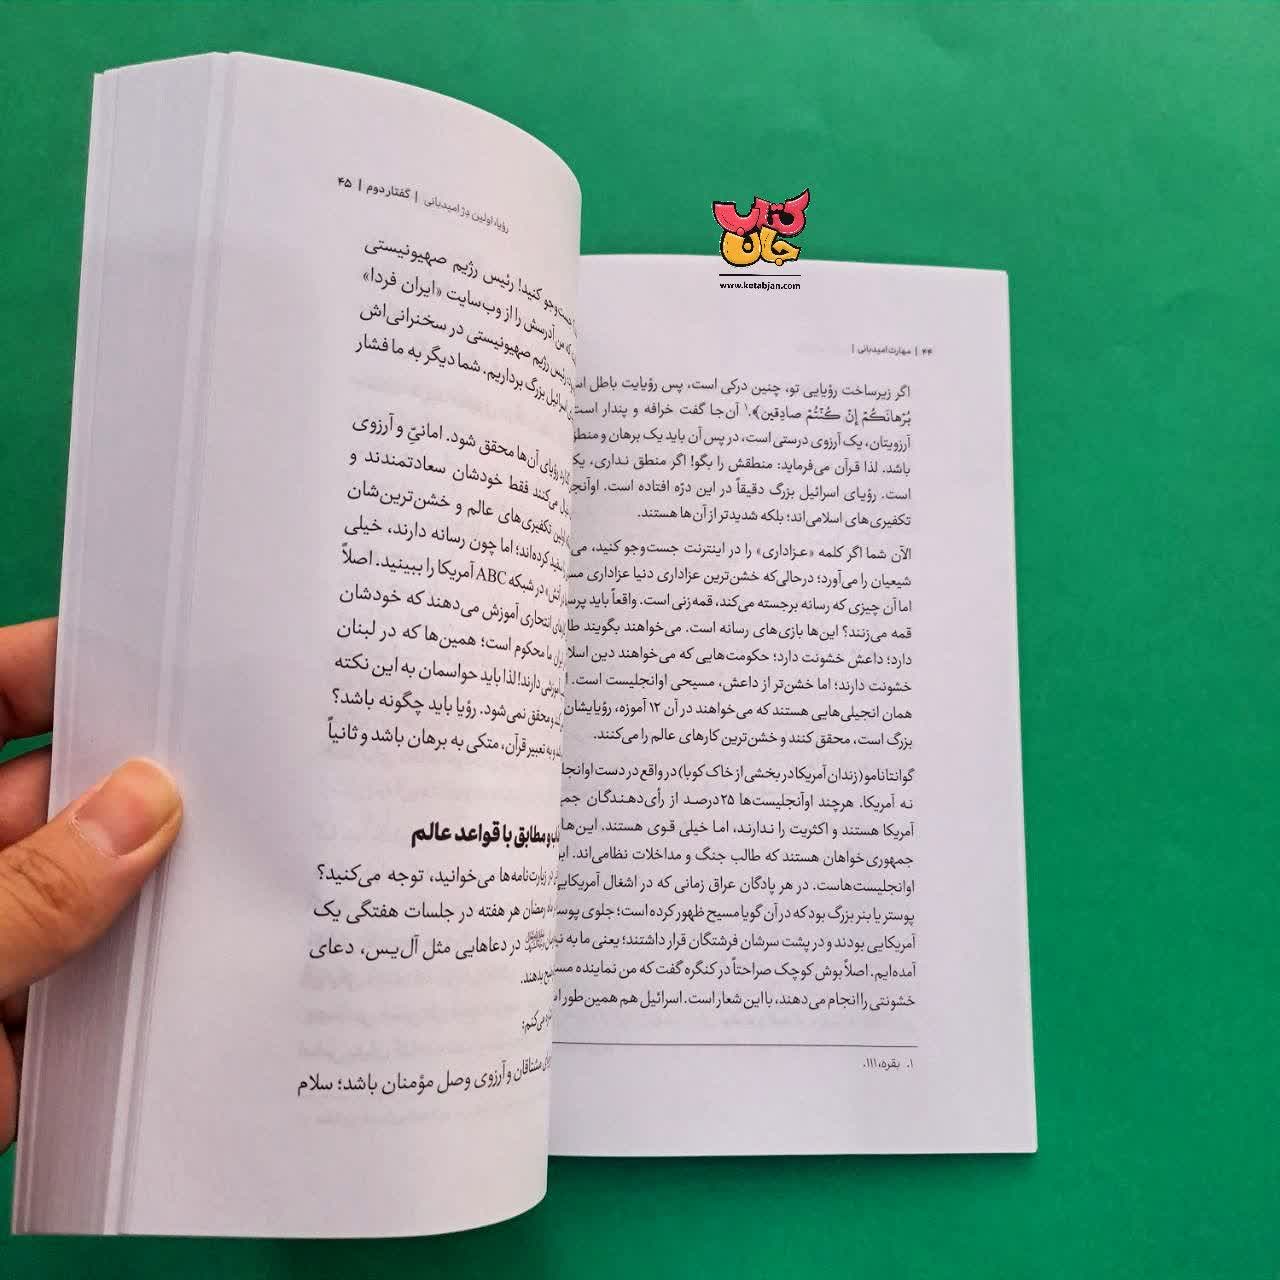 کتاب
جان
www.ketabjan.com
۴۴ | مهارت امیدبانی |
اگر زیرساخت رؤیایی تو، چنین درکی است، پس رؤیایت باطل
بُرْهانَکُمْ إِنْ کُنْتُمْ صادِقین﴾.۱ آن‌جا گفت خرافه و پندار است
آرزویتان، یک آرزوی درستی است، در پس آن باید یک برهان و
باشد. لذا قرآن می‌فرماید: منطقش را بگو! اگر منطق نداری،
است. رؤیای اسرائیل بزرگ دقیقاً در این درّه افتاده است.
تکفیری‌های اسلامی‌اند؛ بلکه شدیدتر از آن‌ها هستند.
الآن شما اگر کلمه «عـزاداری» را در اینترنت جست‌وجو کنید،
شیعیان را می‌آورد؛ درحالی‌که خشن‌ترین عزاداری دنیا عزاداری
اما آن چیزی که رسانه برجسته می‌کند، قمه‌زنی است. واقعاً باید
قمه می‌زنند؟ این‌ها بازی‌های رسانه است. می‌خواهند بگویند
دارد؛ داعش خشونت دارد؛ حکومت‌هایی که می‌خواهند دین
خشونت دارند؛ اما خشن‌تر از داعش، مسیحی اوانجلیست است.
همان انجیلی‌هایی هستند که می‌خواهند در آن ۱۲ آموزه، رؤیایشان
بزرگ است، محقق کنند و خشن‌ترین کارهای عالم را می‌کنند.
گوانتانامو (زندان آمریکا در بخشی از خاک کوبا) در واقع در دست
نه آمریکا. هرچند اوآنجلیست‌ها ۲۵درصـد از رأی‌دهنـدگان
آمریکا هستند و اکثریت را ندارند، اما خیلی قوی هستند. این‌ها
جمهوری‌خواهان هستند که طالب جنگ و مداخلات نظامی‌اند.
اوانجلیست‌هاست. در هر پادگان عراق زمانی که در اشغال
پوستر یا بنر بزرگ بود که در آن گویا مسیح ظهور کرده است؛ جلوی
آمریکایی بودند و در پشت سرشان فرشتگان قرار داشتند؛ یعنی ما به
آمده‌ایم. اصلاً بوش کوچک صراحتاً در کنگره گفت که من نماینده
خشونتی را انجام می‌دهند، با این شعار است. اسرائیل هم همین‌طور
۱. بقره، ۱۱۱.
رؤیا، اولین دژ امیدبانی | گفتار دوم | ۴۵
جست‌وجو کنید! رئیس رژیم صهیونیستی
که من آدرسش را از وب‌سایت «ایران فردا»
رئیس رژیم صهیونیستی در سخنرانی‌اش
اسرائیل بزرگ برداریم. شما دیگر به ما فشار
رؤیای آن‌ها محقق شود. امانیّ و آرزوی
می‌کنند فقط خودشان سعادتمندند و
اولین تکفیری‌های عالم و خشن‌ترین‌شان
کرده‌اند؛ اما چون رسانه دارند، خیلی
در شبکه ABC آمریکا را ببینید. اصلاً
انتحاری آموزش می‌دهند که خودشان
ما محکوم است؛ همین‌ها که در لبنان
آموزشی دارند! لذا باید حواسمان به این نکته
و محقق نمی‌شود. رؤیا باید چگونه باشد؟
و به تعبیر قرآن، متکی به برهان باشد و ثانیاً
و مطابق با قواعد عالم
در زیارت‌نامه‌ها می‌خوانید، توجه می‌کنید؟
رمضان هر هفته در جلسات هفتگی یک
در دعاهایی مثل آل‌یس، دعای
بدهند.
می‌کنم:
مشتاقان و آرزوی وصل مؤمنان باشد؛ سلام